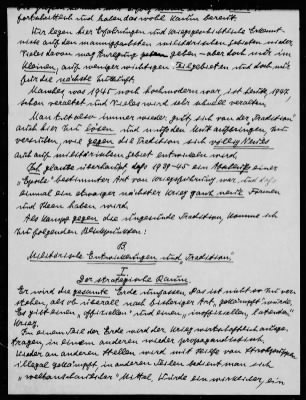 Wir legen hier Erfahrungen und kriegsgeschichtliche Erkennt-
nisse auf den mannigfachsten militärischen Gebieten nieder,
Vieles davon mag Anregung geben, aber doch nur im
Kleinen, auf weniger wichtigen Teilgebieten und doch nur
für die nächste Zukunft.
Manches was 1945 noch hochmodern war, ist heute, 1947,
schon veraltet und Vieles wird sehr schnell veralten.
Man hat also immer wieder sich von der Tradition
auch hier zu lösen und muss den Mut aufbringen, zu
gegen die Tradition sich völlig Neues
auch auf militärischem Gebiet
Ich glaube überhaupt, dass 1939-45 ein Abschluss einer
"Epoche" bestimmter Art von Kriegsführung war und dass
einmal ein etwaiger nächster Krieg ganz neue Formen
und Ideen haben wird.
Als Kampf gegen die ungesunde Tradition, komme ich
zu folgenden
B
Militärische Entwicklungen und Tradition
I
Der strategische Raum.
Er wird die gesamte Erde umfassen. Das ist nicht so zu ver-
stehen, als ob überall nach bisheriger Art "gekämpft" würde.
Es gibt einen "offiziellen" und einen "inoffiziellen, latenten"
Krieg.
In einem Teil der Erde wird der Krieg wirtschaftlich ausge-
tragen, in einem anderen wieder propagandistisch,
wieder an anderen Stellen wird mit Hilfe von
illegal gekämpft, in anderen Teilen bedient man sich
"weltanschaulicher" Mittel, würde ein wirklicher, ein